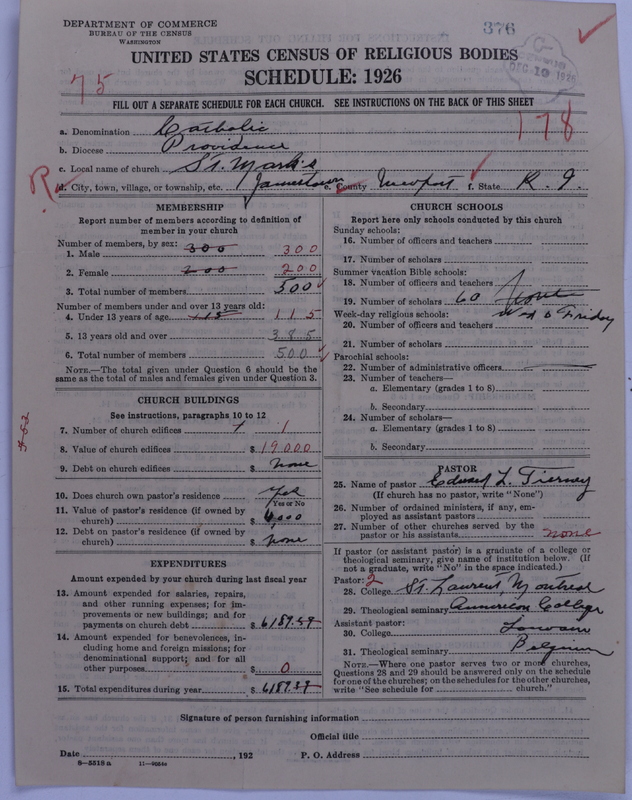 DEPARTMENT OF COMMERCE
BUREAU OF THE CENSUS
WASHINGTON
376
UNITED STATES CENSUS OF RELIGIOUS BODIES
SCHEDULE: 1926
CENSUS
DEC 10 1926
75
FILL OUT A SEPARATE SCHEDULE FOR EACH CHURCH. SEE INSTRUCTIONS ON THE BACK OF THIS SHEET
178
a. Denomination Catholic
b. Diocese Providence
c. Local name of church St. Mark's
R
d. City, town, village, or township, etc. Jamestown e. County Newport f. State R. I.
MEMBERSHIP
Report number of members according to definition of member in your church
Number of members, by sex:
1. Male 300 300
2. Female 200 200
3. Total number of members 500
Number of members under and over 13 years old:
4. Under 13 years of age 115 115
5. 13 years old and over 385
6. Total number of members 500
NOTE.—The total given under Question 6 should be the same as the total of males and females given under Question 3.
CHURCH BUILDINGS
See instructions, paragraphs 10 to 12
7. Number of church edifices 1 1
8. Value of church edifices $ 19000
9. Debt on church edifices $ none
10. Does church own pastor's residence yes
Yes or No
11. Value of pastor's residence (if owned by church) $ 6,000
12. Debt on pastor's residence (if owned by church) $ none
EXPENDITURES
Amount expended by your church during last fiscal year
13. Amount expended for salaries, repairs, and other running expenses; for improvements or new buildings; and for payments on church debt $
14. Amount expended for benevolences, including home and foreign missions; for denominational support; and for all other purposes $ 0
15. Total expenditures during year $
CHURCH SCHOOLS
Report here only schools conducted by this church
Sunday schools:
16. Number of officers and teachers
17. Number of scholars
Summer vacation Bible schools:
18. Number of officers and teachers
19. Number of scholars 60 none
Week-day religious schools: Wed & Friday
20. Number of officers and teachers
21. Number of scholars
Parochial schools:
22. Number of administrative officers
23. Number of teachers—
a. Elementary (grades 1 to 8)
b. Secondary
24. Number of scholars—
a. Elementary (grades 1 to 8)
b. Secondary
PASTOR
25. Name of pastor Edward L. Tierney
(If church has no pastor, write "None")
26. Number of ordained ministers, if any, employed as assistant pastors
27. Number of other churches served by the pastor or his assistants none
If pastor (or assistant pastor) is a graduate of a college or theological seminary, give name of institution below. (If not a graduate, write "No" in the space indicated.)
Pastor: 2
28. College St. Laurent, Montreal
29. Theological seminary American College
Assistant pastor:
30. College Louvain
31. Theological seminary Belgium
NOTE.—Where one pastor serves two or more churches, Questions 28 and 29 should be answered only on the schedule for one of the churches; on the schedules for the other churches, write "See schedule for church."
Signature of person furnishing information
Official title
Date , 192 P. O. Address
8—5518 a 11—9554a